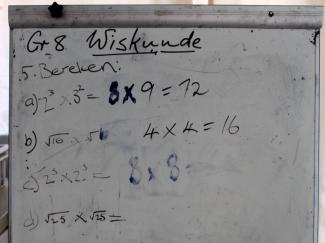 Gr 8 Wiskunde
5. Bereken:
a) 2³ × 3² = 8 × 9 = 12
b) √16 × √16 4 × 4 = 16
c) 2³ × 2³ = 8 × 8
d) √25 × √25 =